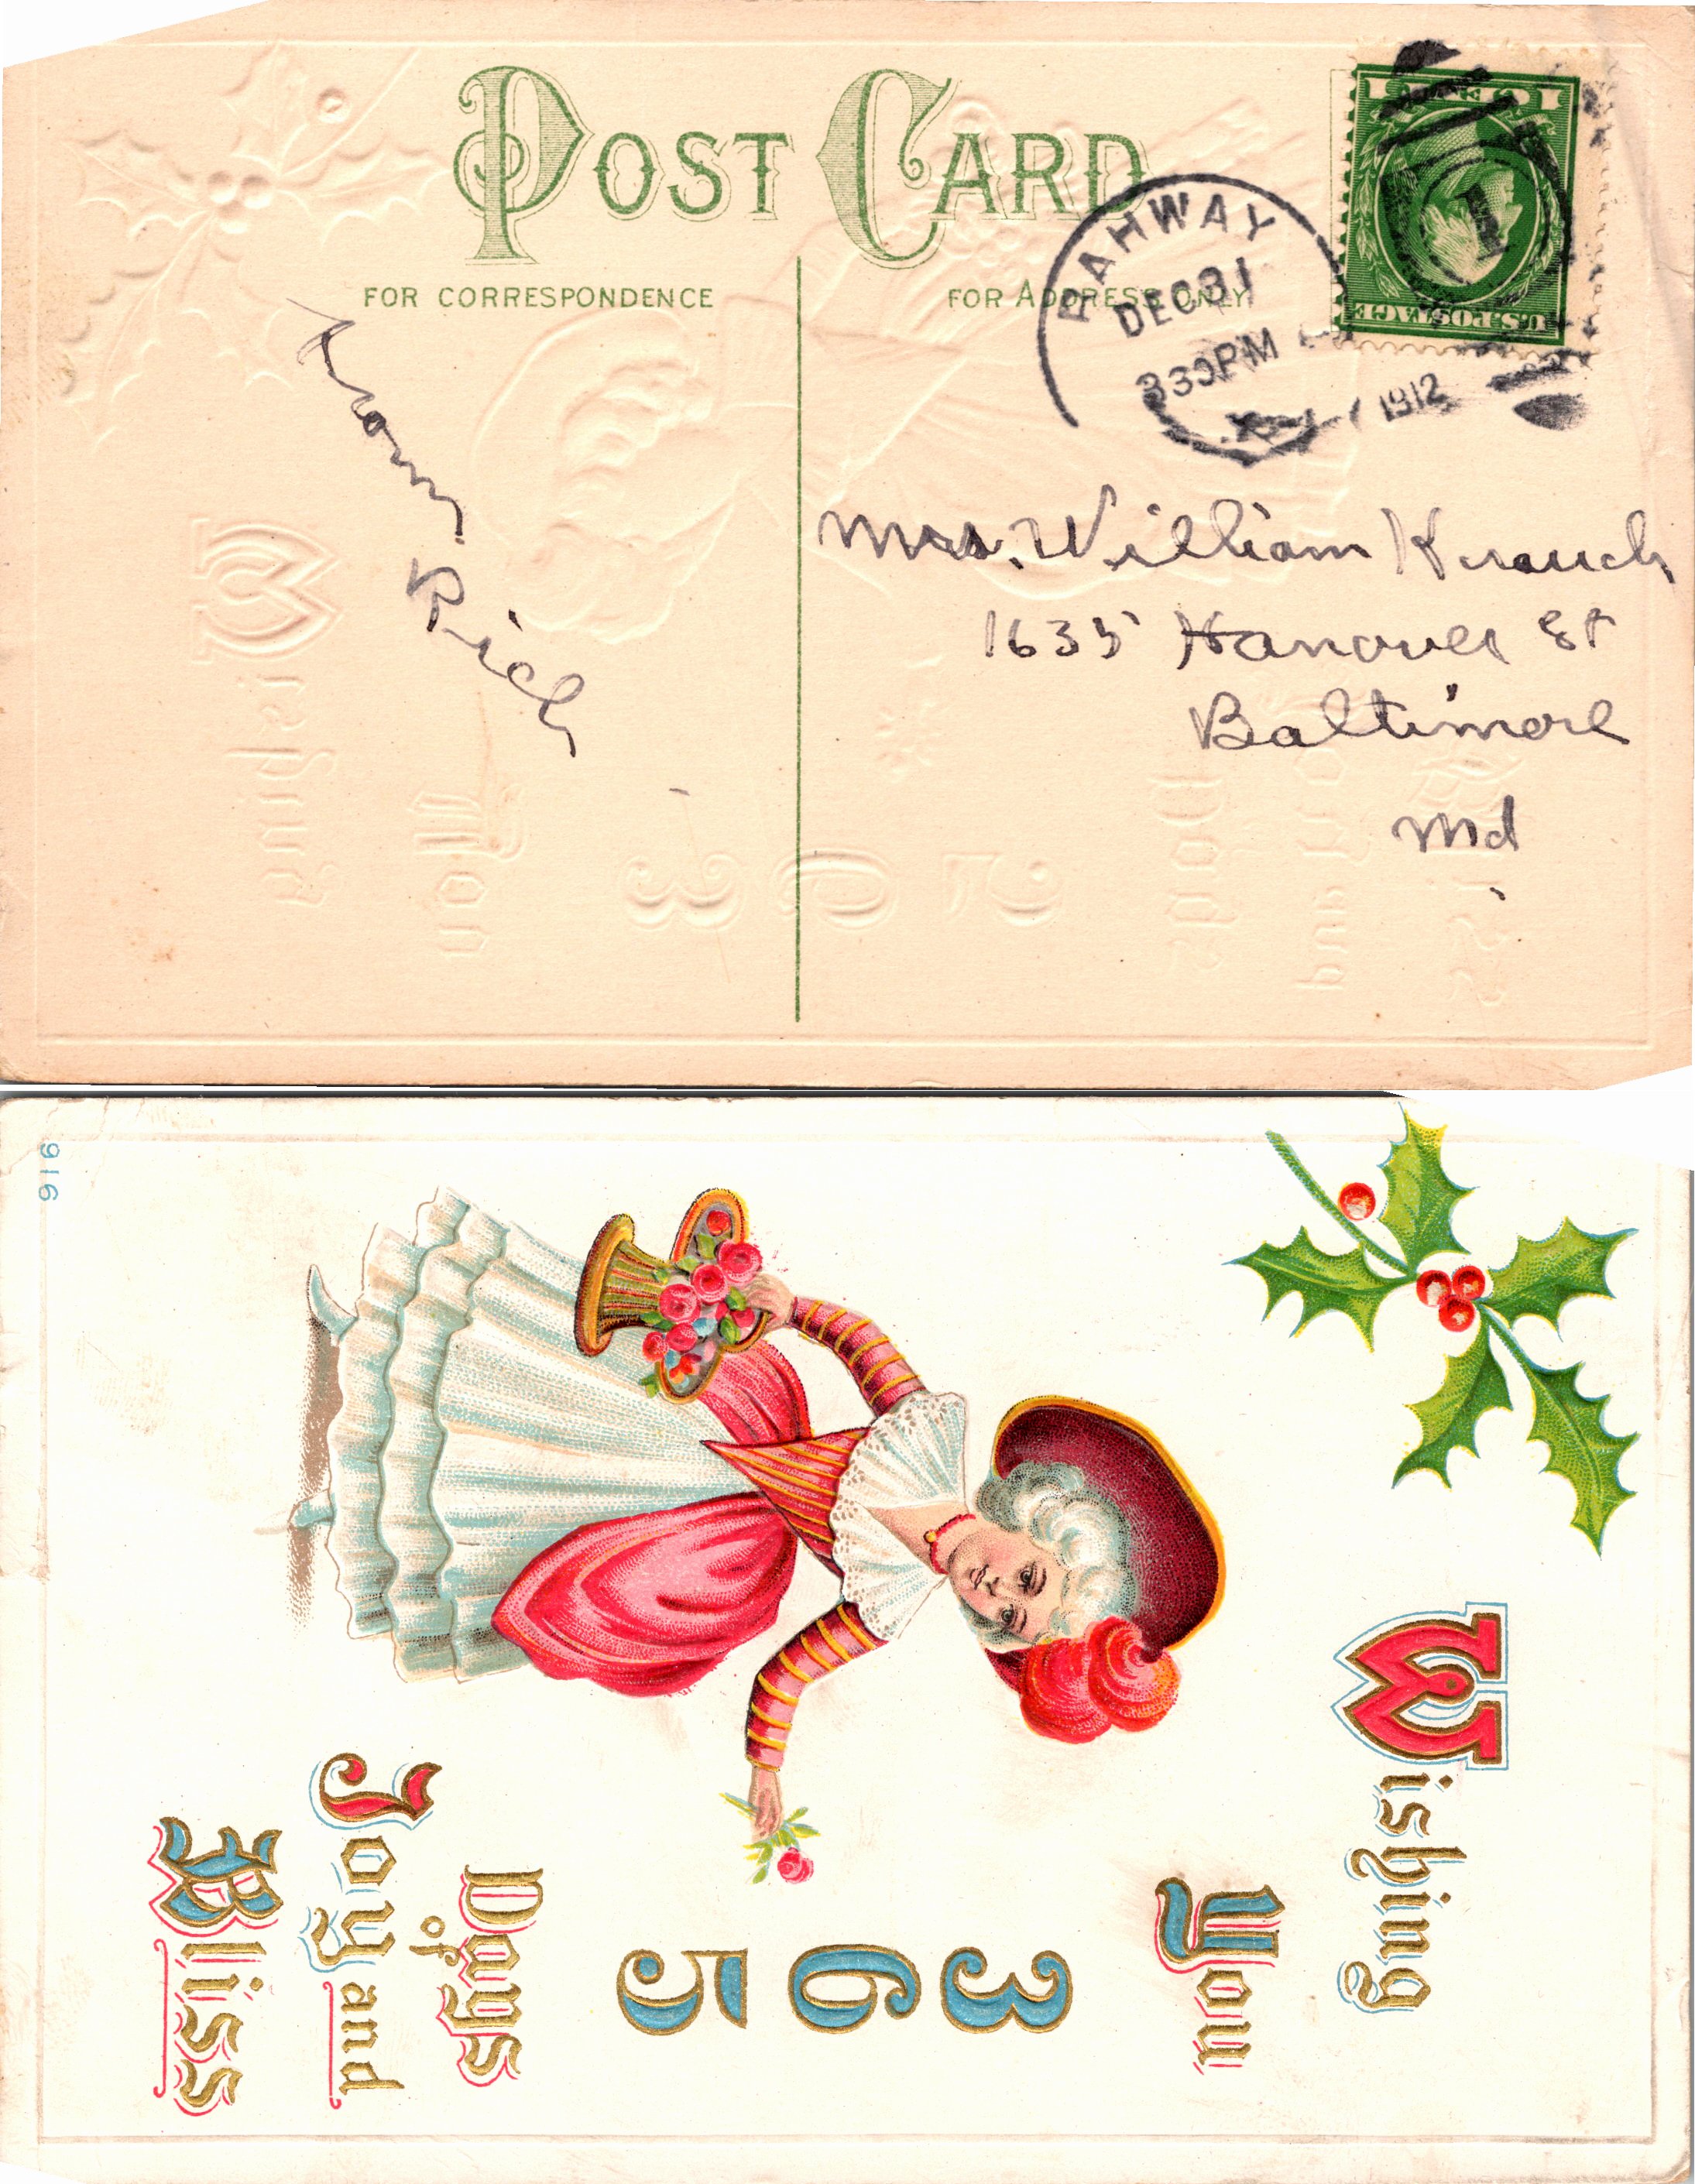 POST CARD
FOR CORRESPONDENCE
FOR ADDRESS ONLY
RAHWAY
DEC 31
330PM
1912
1 CENT 1
1
U.S. POSTAGE
From
Rich
Mrs. William Krauch
1635 Hanover St
Baltimore
Md
916
Wishing
You
365
Days
of
Joy and
Bliss